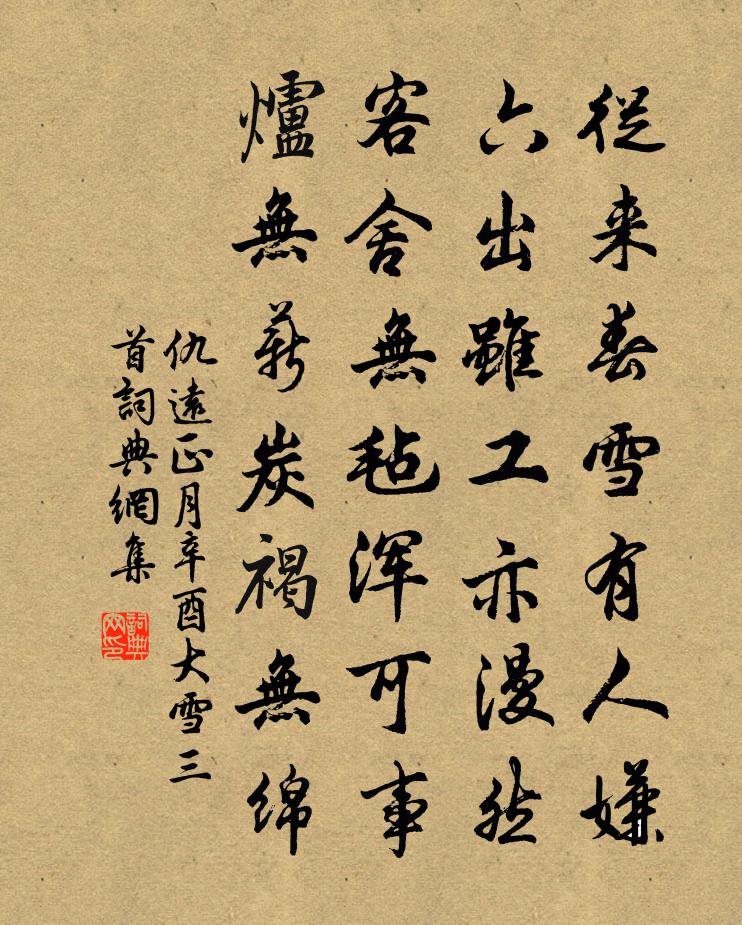 從来春雪有人嫌
六出雖工亦漫然
客舍無毡渾可事
爐無薪炭褐無綿
仇遠正月辛酉大雪三
首詞典網集
詞典网印